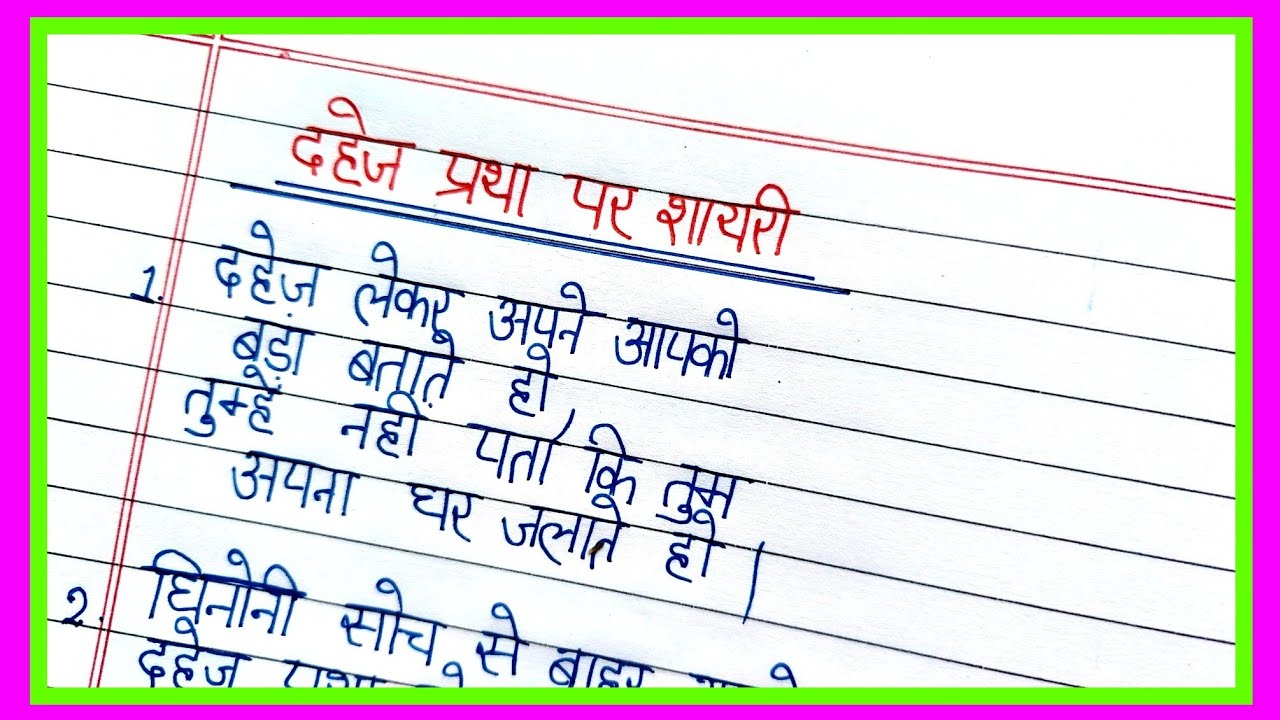 दहेज प्रथा पर शायरी
1. दहेज़ लेकर अपने आपको
बड़ा बताते हो,
तुम्हें नही पता कि तुम
अपना घर जलाते हो।
2. घिनोनी सोच से बाहर
दहेज प्रथा